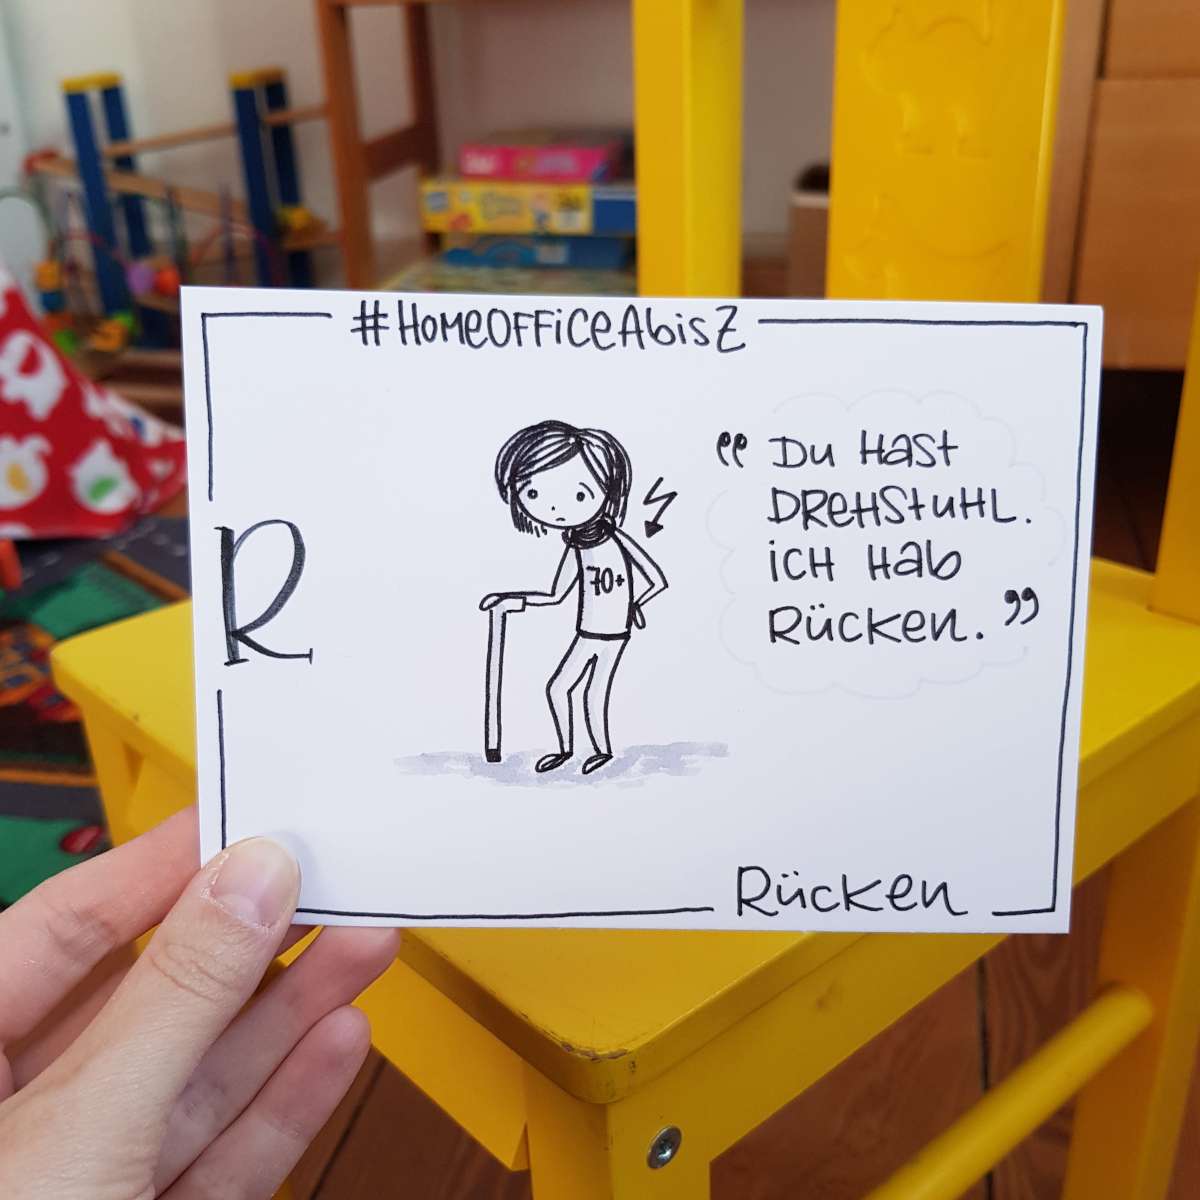 #HomeOfficeAbisZ
R
70+
„Du hast
Drehstuhl.
Ich hab
Rücken.”
Rücken